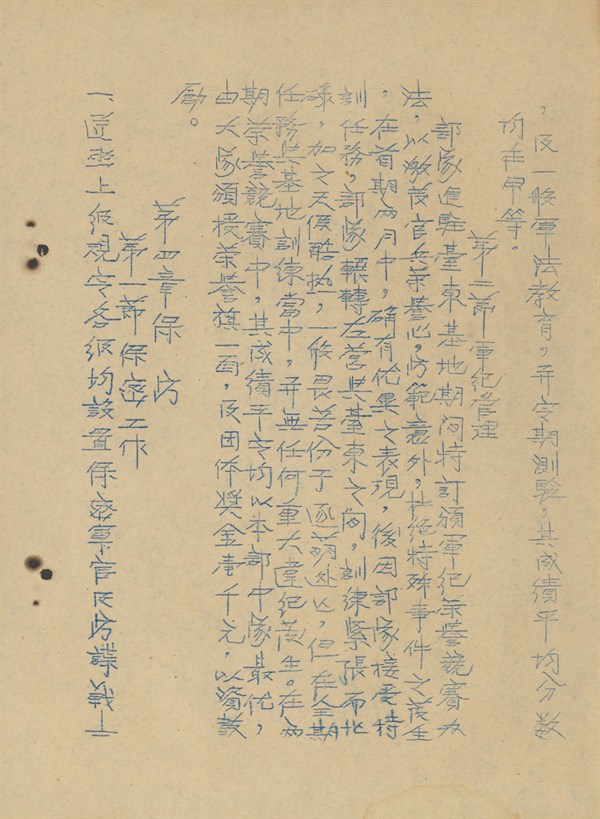 ，及一般軍法教育，并定期測驗，其成績平均分数
均在甲等。
第二節軍紀管理
部隊進駐臺東基地期间特訂頒軍紀荣誉競賽办
法，以激发官兵荣誉心，防範意外，杜絕特殊事件之发生
，在首期两月中，确有优異之表現，後因部隊接受特
訓任務，部隊輾轉左营與臺東之间，訓練紧張而忙
碌，加之天候酷热，一般畏苦份子逐萌，但在全期
任務與基地訓練當中，并無任何重大違紀发生。在两
期荣誉競賽中，其成績平定均以本部中隊最优，
由大隊頒授荣誉旗一面，及团体奖金壹千元，以資鼓
励。
第四章保防
第一節保密工作
一、遵照上级規定各级均設置保密軍官及防諜战士